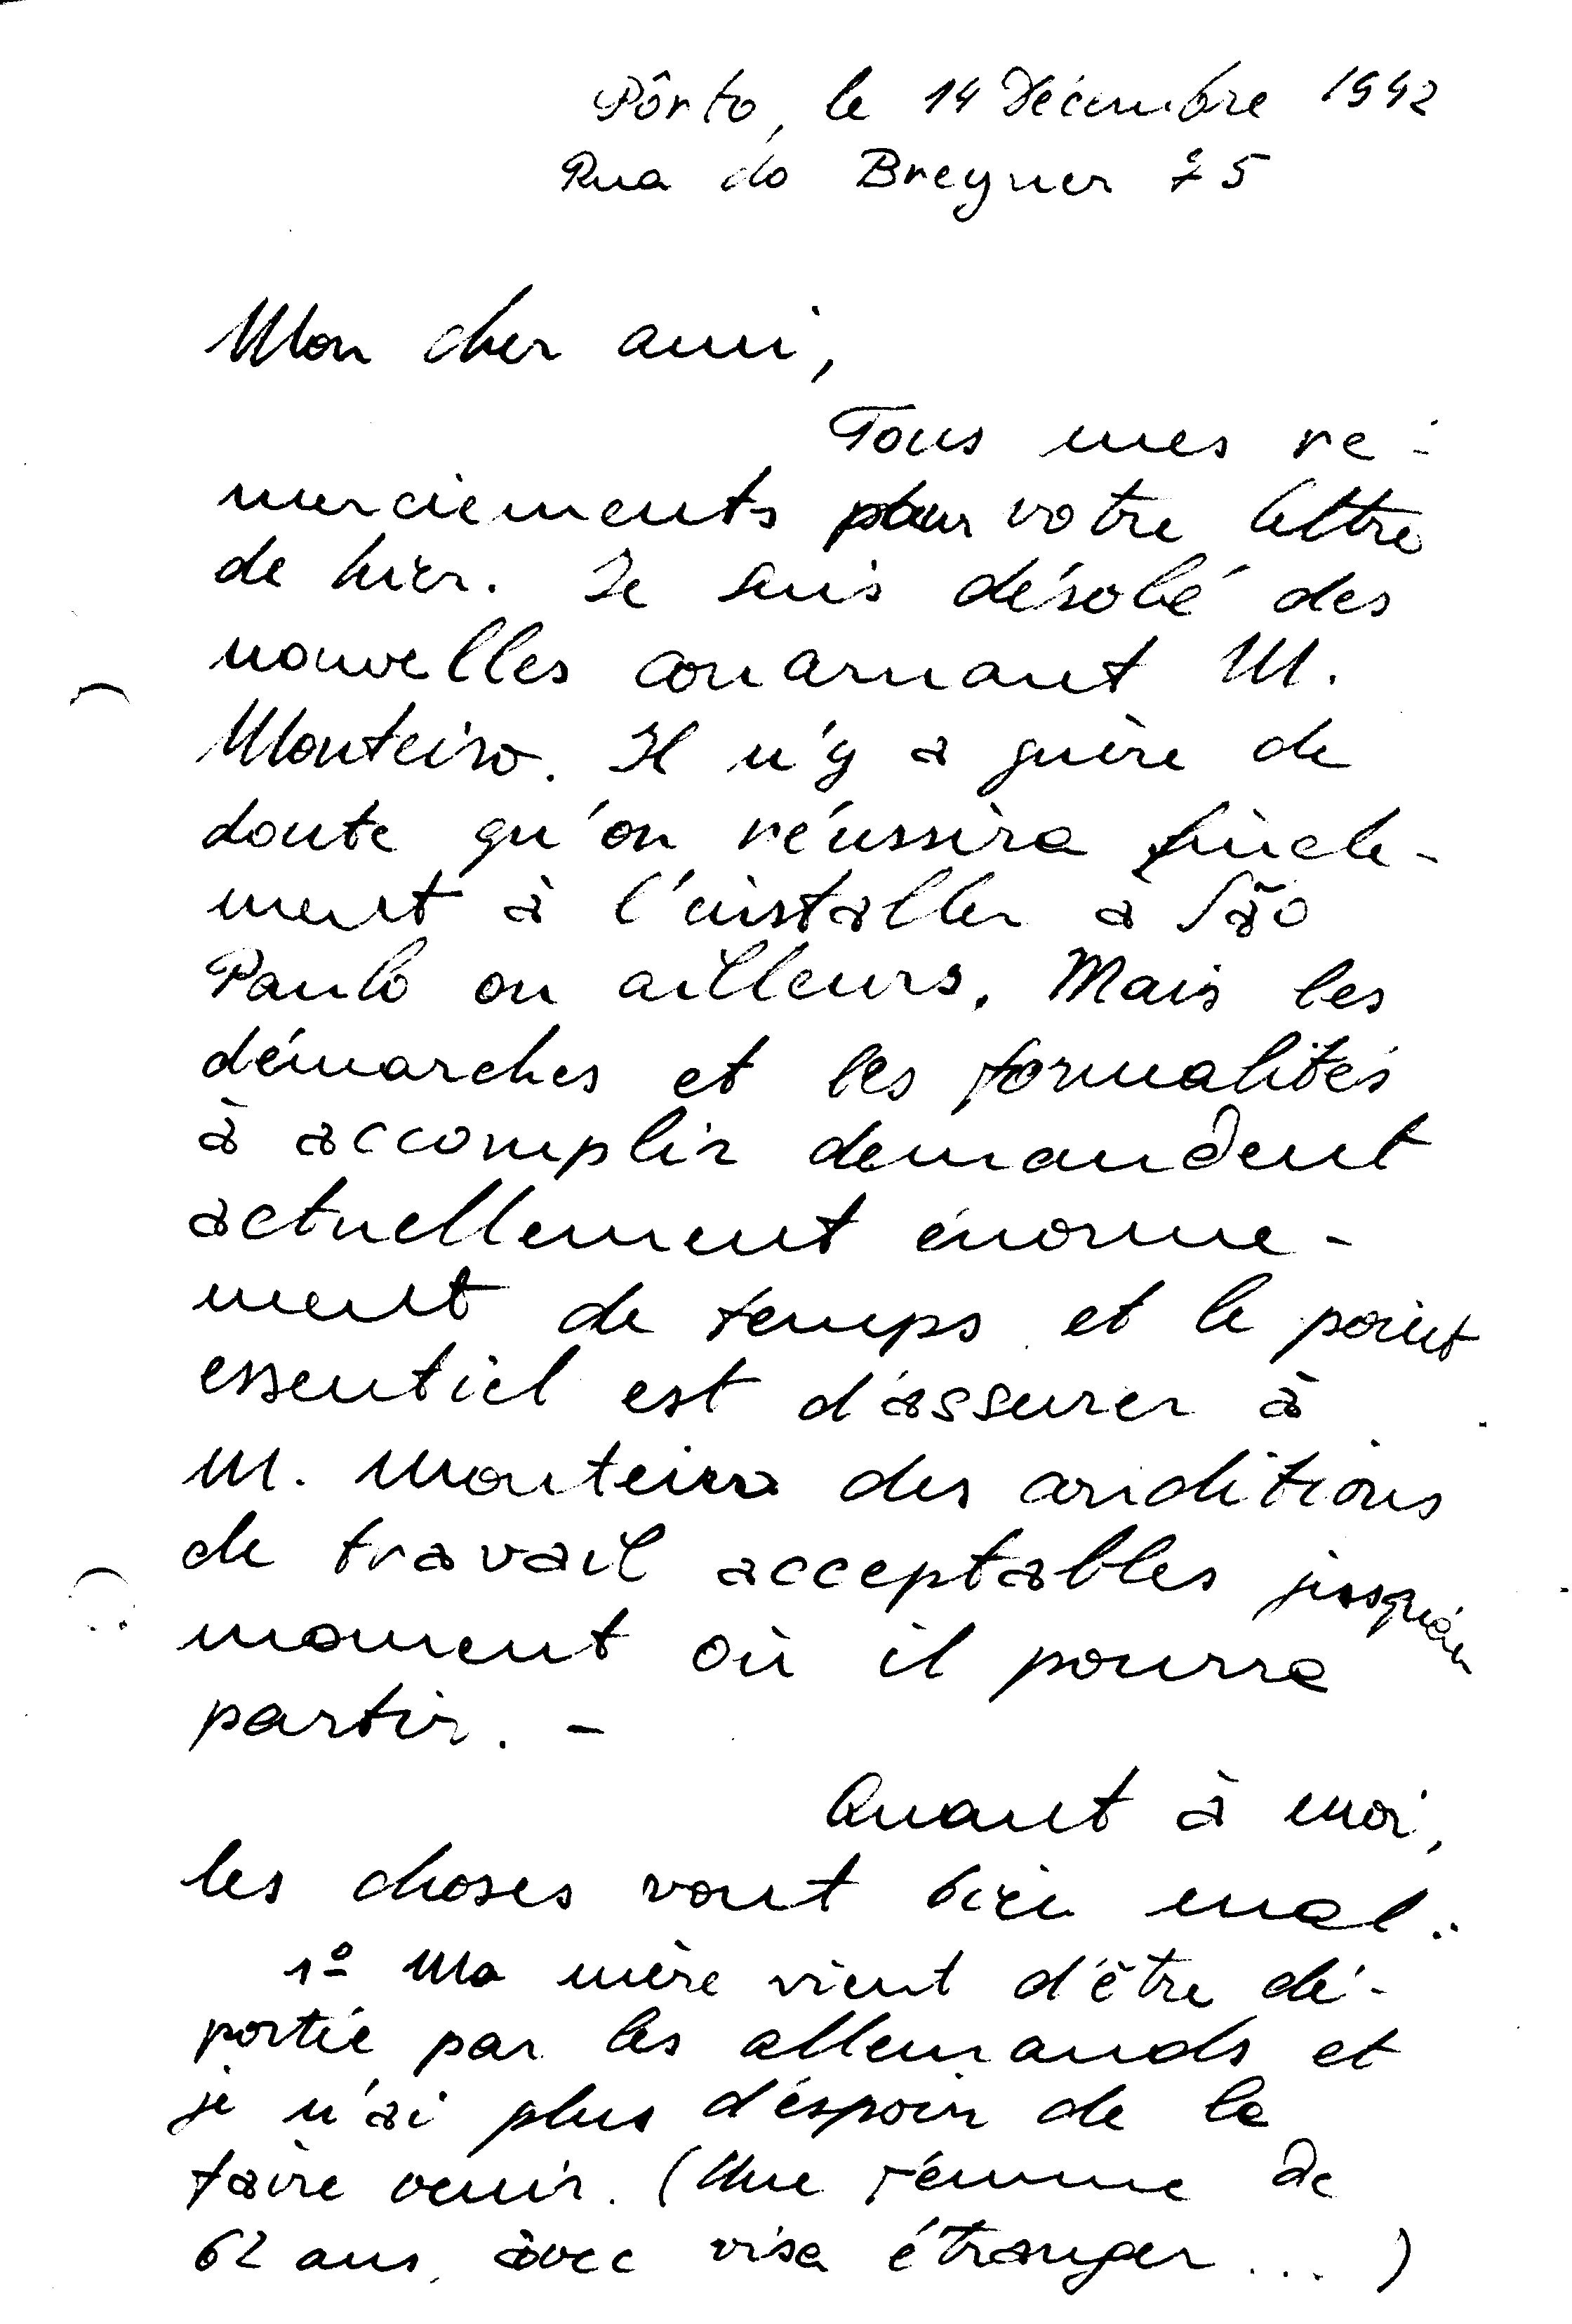 Pôrto, le 14 Décembre 1942
Rua do Breyner 75
Mon cher ami,
Tous mes re-
merciements pour votre lettre
de hier. Je suis désolé des
nouvelles concernant M.
Monteiro. Il n'y a guère de
doute qu'on réussira finale-
ment à l'installer a São
Paulo ou ailleurs. Mais les
démarches et les formalités
à accomplir demandent
actuellement énorme-
ment de temps et le point
essentiel est d'assurer à
M. Monteiro des conditions
de travail acceptables jusqu'au
moment où il pourra
partir. -
Quant à moi,
les choses vont bien mal..
1º Ma mère vient d'être dé-
portée par les allemands et
je n'ai plus d'éspoir de la
faire venir. (Une femme de
62 ans, avec visa étranger...)